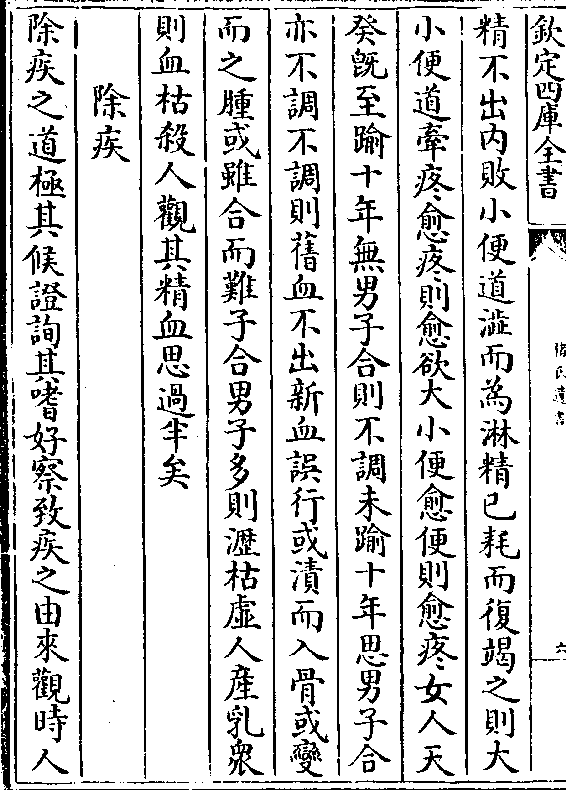 欽定四庫全書
褚氏遺書
六
精不出内敗小便道澁而為淋精已耗而復竭之則大
小便道牽疼愈疼則愈欲大小便愈便則愈疼女人天
癸旣至踰十年無男子合則不調未踰十年思男子合
亦不調不調則舊血不出新血誤行或漬而入骨或變
而之腫或雖合而難子合男子多則瀝枯虚人産乳衆
則血枯殺人觀其精血思過半矣
除疾
除疾之道極其候證詢其嗜好察致疾之由來觀時人